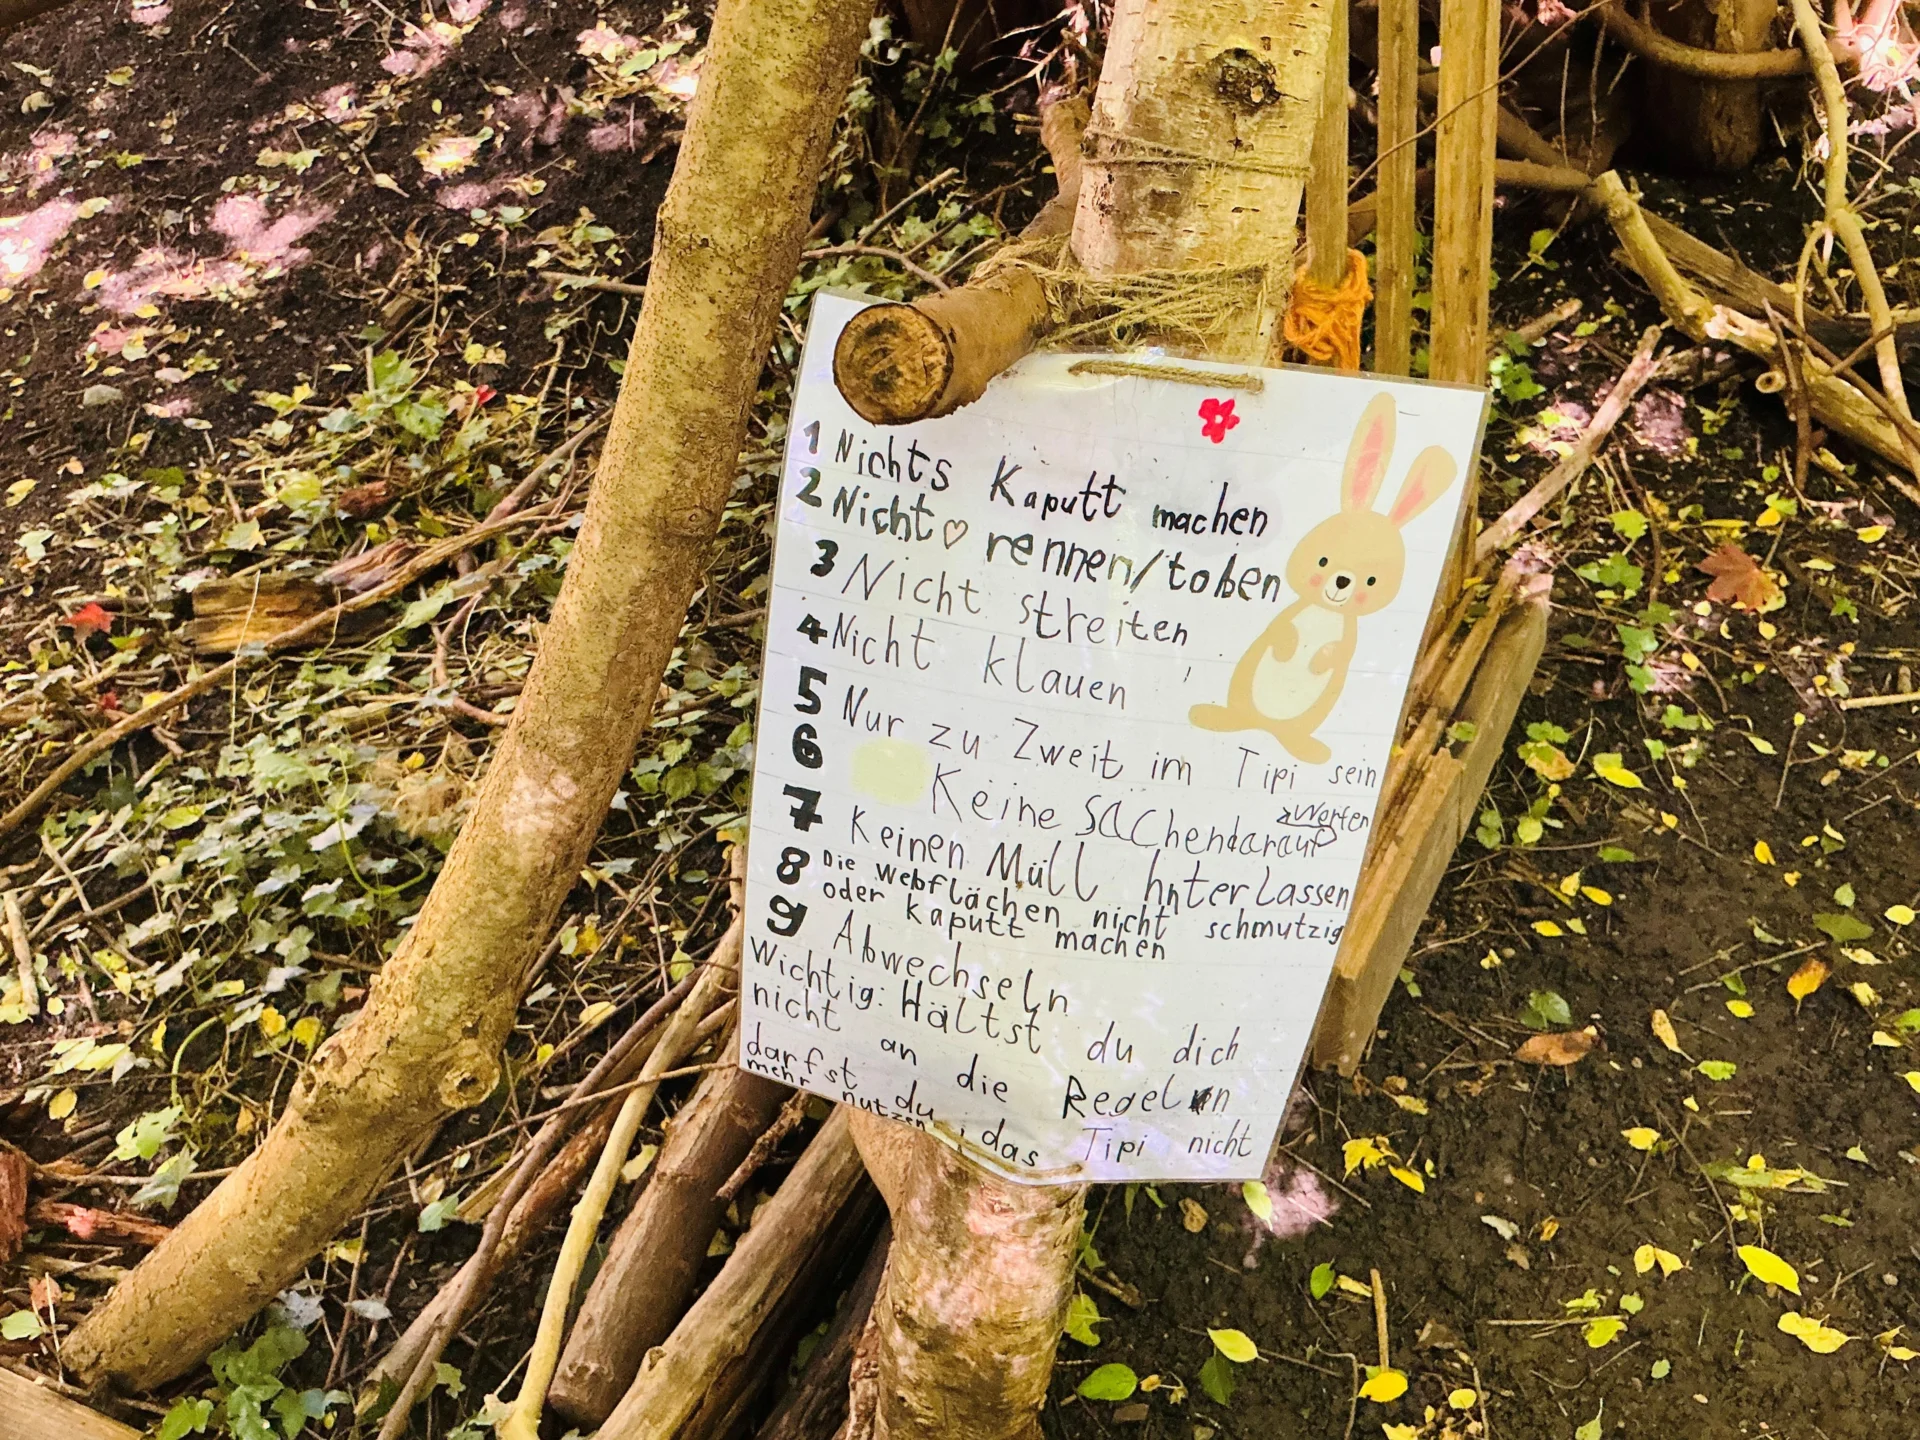 1 Nichts Kaputt machen
2 Nicht rennen/toben
3 Nicht streiten
4 Nicht klauen
5 Nur zu Zweit im Tipi sein
6 Keine Sachen darauf
Worfen
7 Keinen Müll hnterlassen
8 Die webflächen nicht schmutzig
oder kaputt machen
9 Abwechseln
Wichtig: Hältst du dich
nicht an die Regeln
darfst du das Tipi nicht
mehr nutzen!